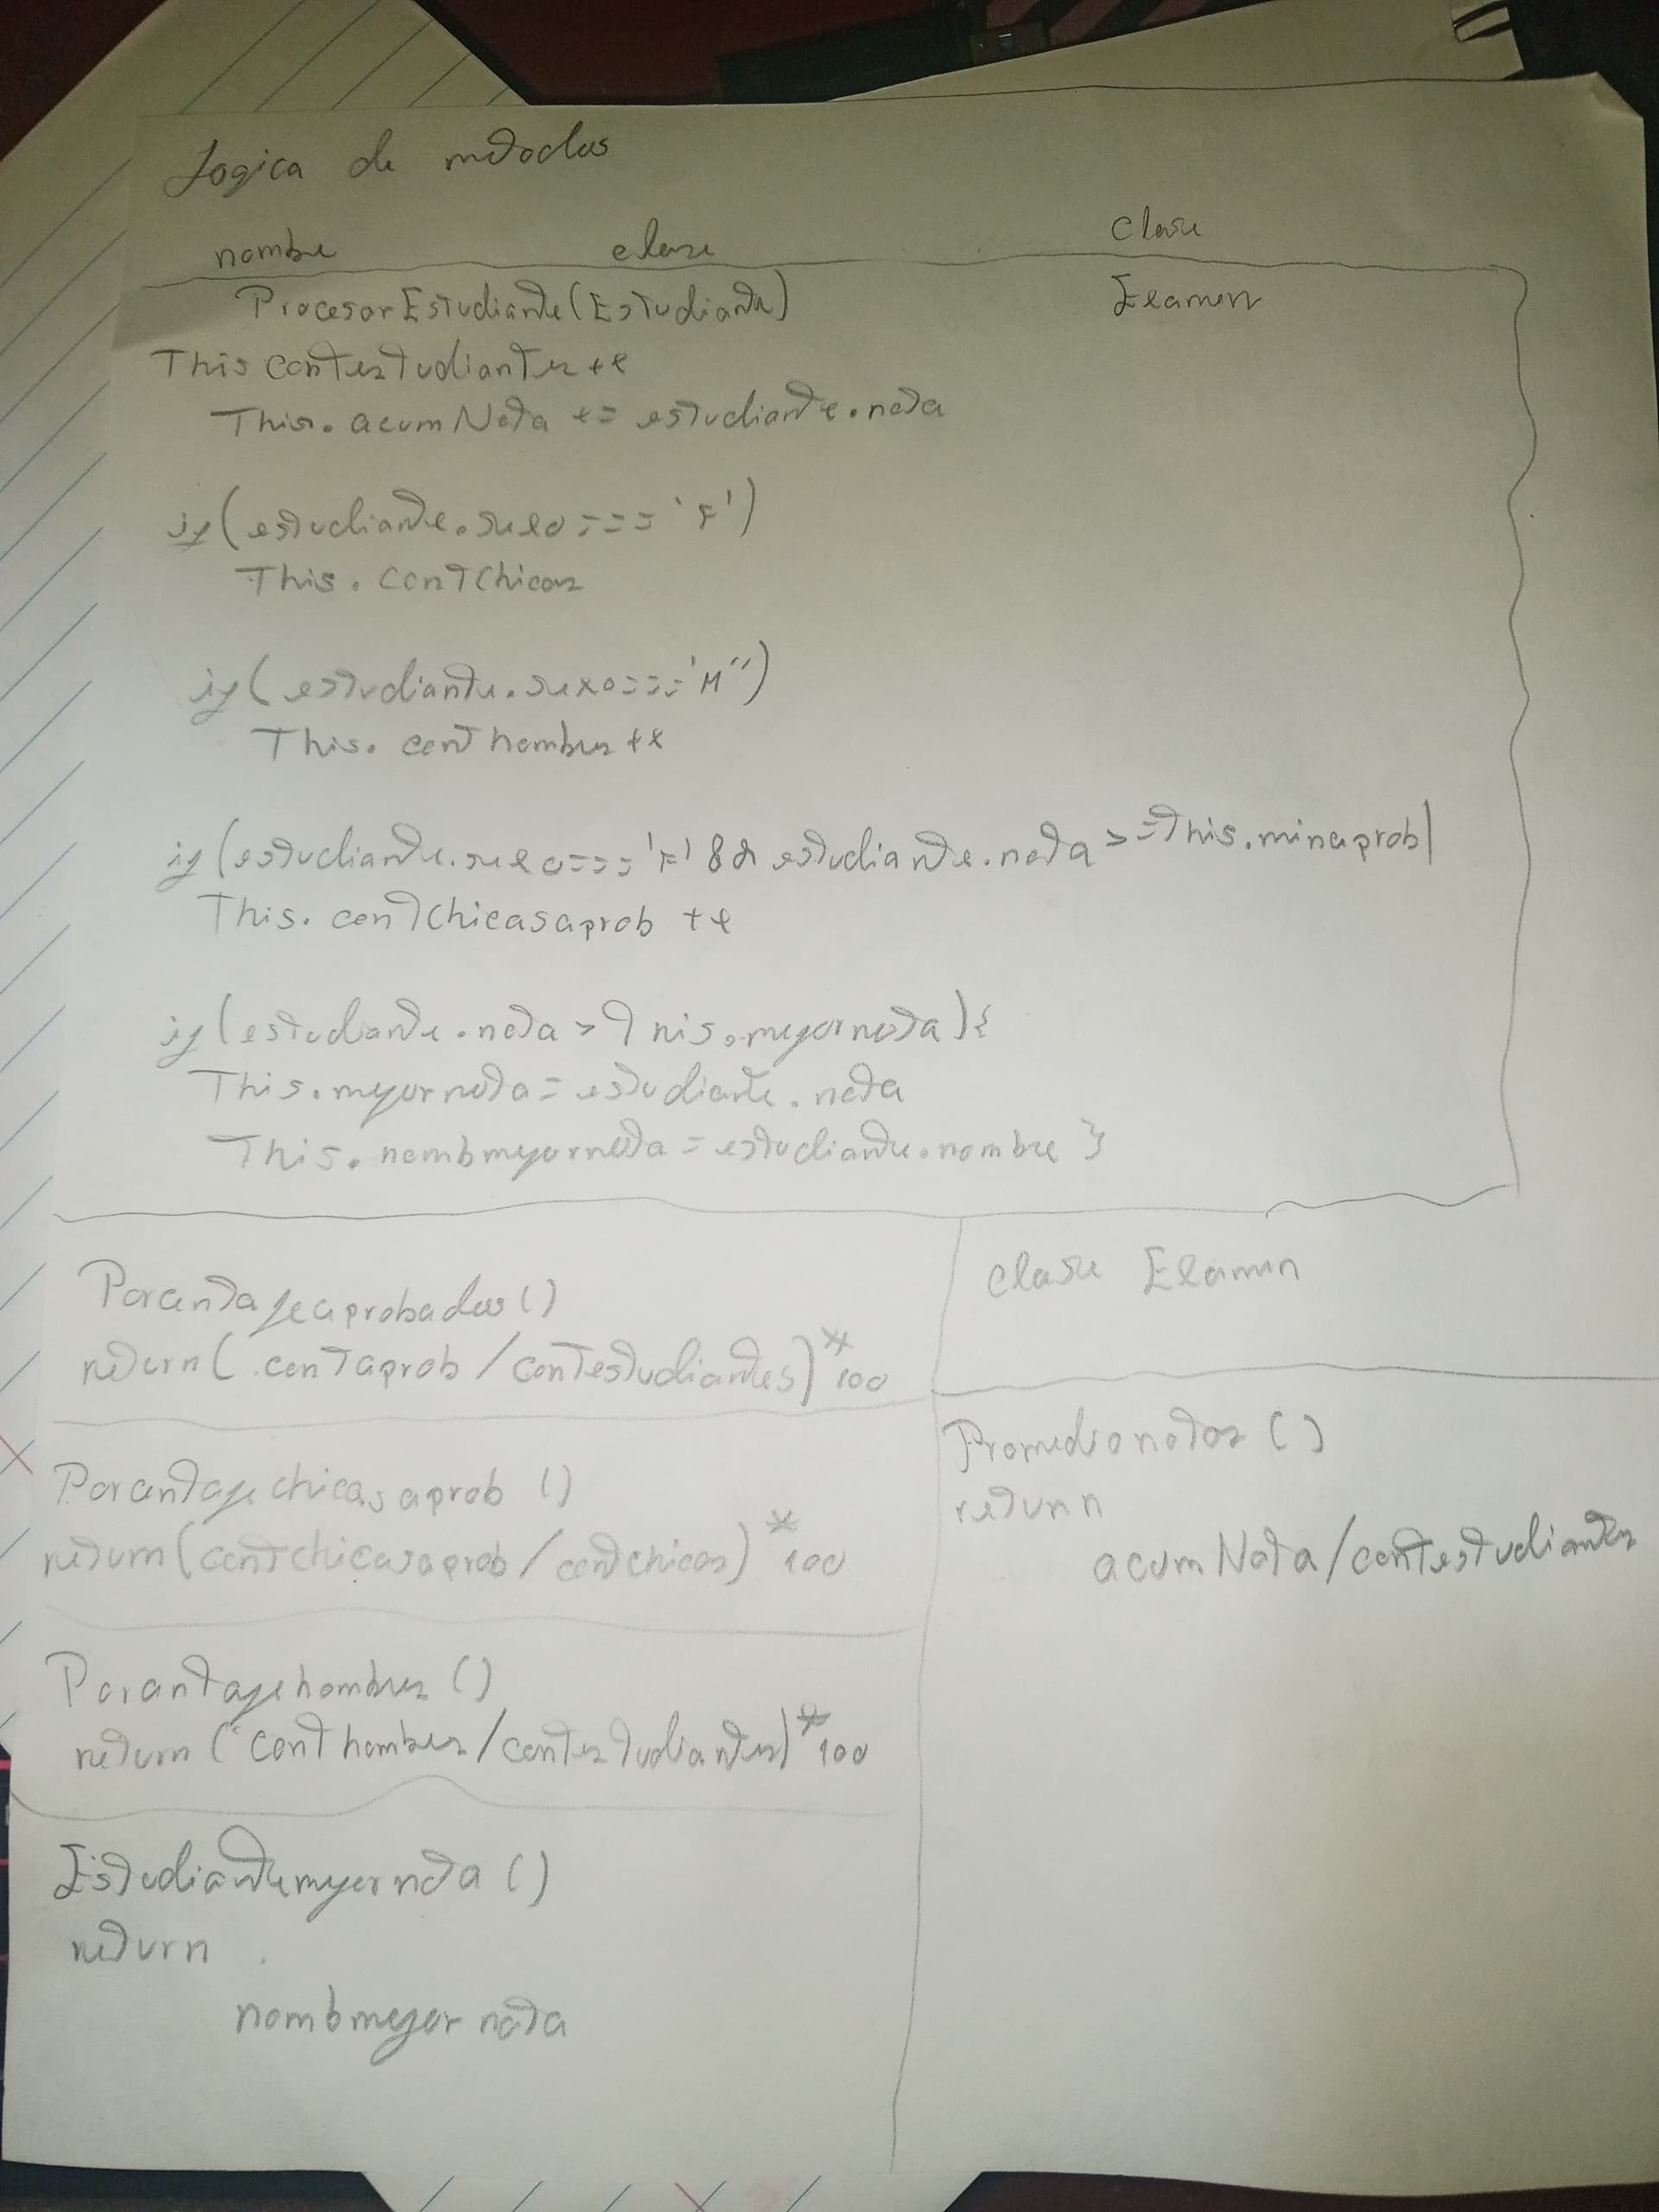 Logica de metodos
nombre clase clase
ProcesarEstudiante(Estudiante) Examen
This contestudiantes ++
This. acumNota += estudiante.nota
if(estudiante.sexo === 'F')
This. contchicas
if(estudiante.sexo === 'M'')
This. conthombres ++
if(estudiante.sexo === 'F' && estudiante.nota >= This.minaprob)
This. contchicasaprob ++
if(estudiante.nota > This.mejornota){
This.mejornota = estudiante.nota
This. nombmejornota = estudiante.nombre }
Porcentajeaprobados()
return(.contaprob/contestudiantes)*100
clase Examen
Porcentajechicasaprob ()
return(contchicasaprob/contchicas)*100
Porcentajehombres ()
return (conthombres/contestudiantes)*100
Estudiantemejornota ()
return
nombmejornota
Promedionotas ()
return
acumNota/contestudiantes